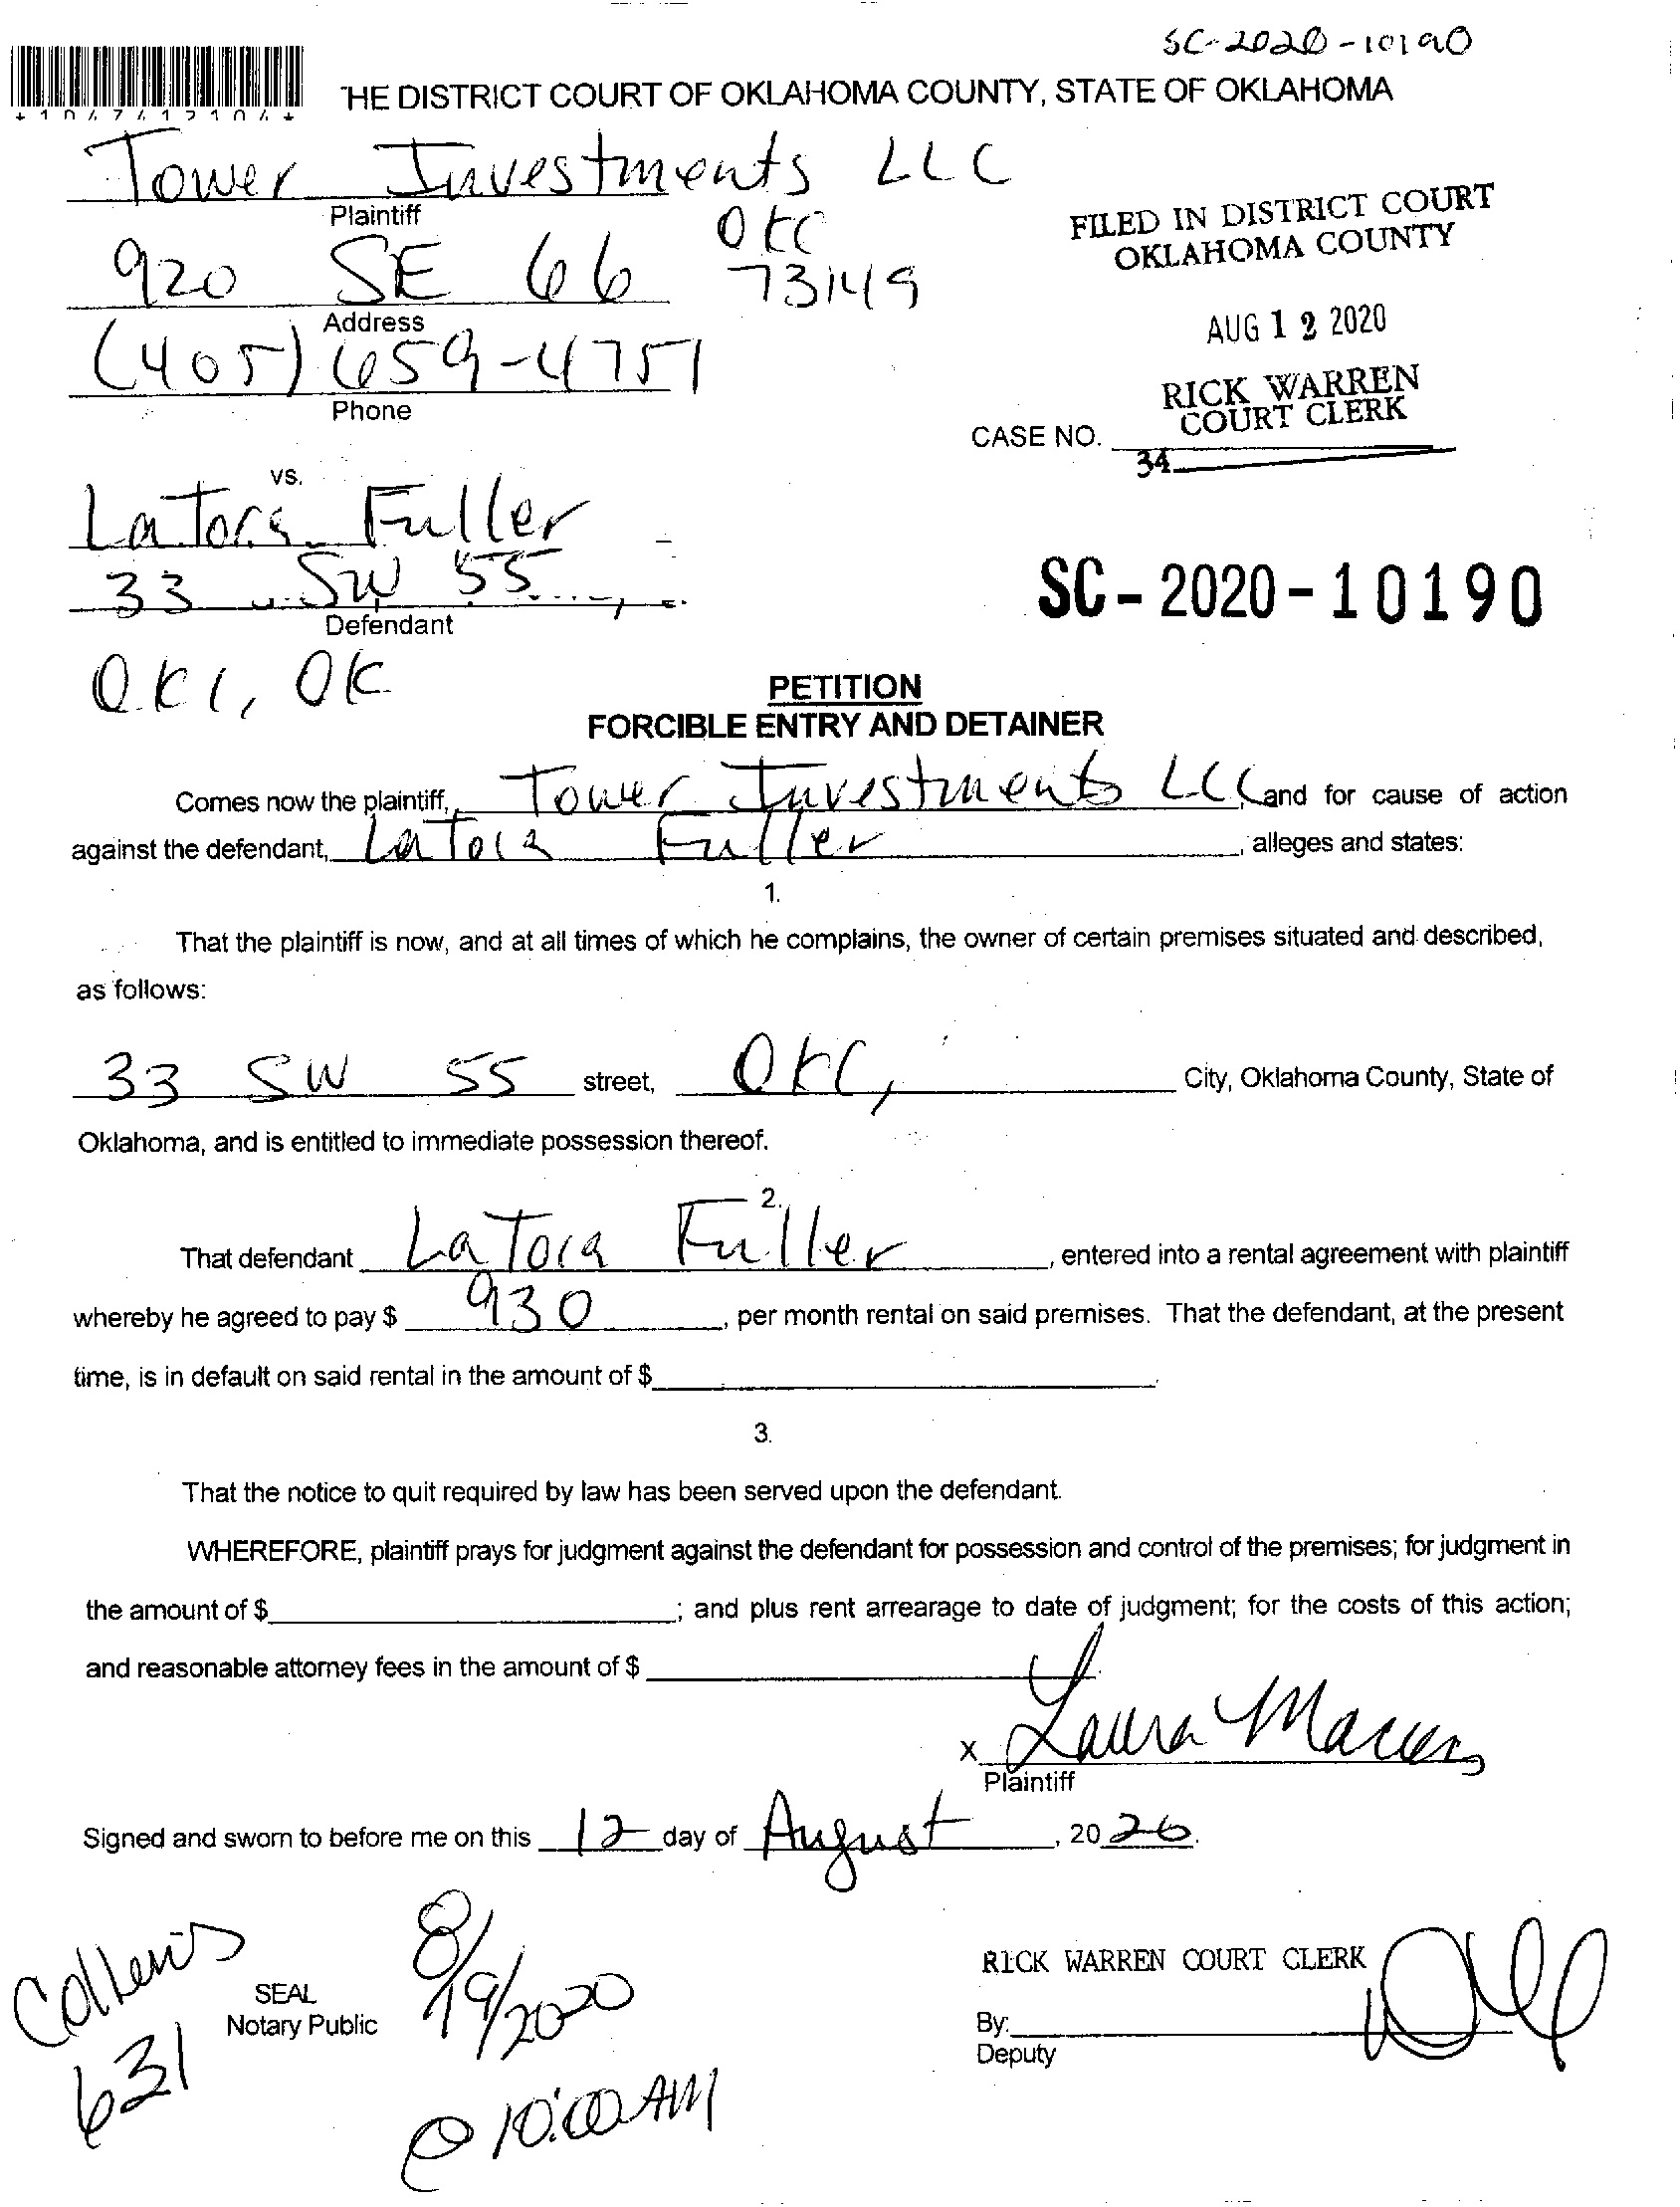 SC-2020-10190
THE DISTRICT COURT OF OKLAHOMA COUNTY, STATE OF OKLAHOMA
Tower Investments LLC
Plaintiff
OKC
920 SE 66 73149
Address
(405) 659-4751
Phone
FILED IN DISTRICT COURT
OKLAHOMA COUNTY
AUG 12 2020
RICK WARREN
COURT CLERK
CASE NO.
34
vs.
LaTora Fuller
33 SW 55
Defendant
OKC, OK
SC-2020-10190
PETITION
FORCIBLE ENTRY AND DETAINER
Comes now the plaintiff, Tower Investments LLC and for cause of action
against the defendant, LaTora Fuller, alleges and states:
1.
That the plaintiff is now, and at all times of which he complains, the owner of certain premises situated and described,
as follows:
33 SW 55 street, OKC, City, Oklahoma County, State of
Oklahoma, and is entitled to immediate possession thereof.
2.
That defendant LaTora Fuller, entered into a rental agreement with plaintiff
whereby he agreed to pay $ 930, per month rental on said premises. That the defendant, at the present
time, is in default on said rental in the amount of $
3.
That the notice to quit required by law has been served upon the defendant.
WHEREFORE, plaintiff prays for judgment against the defendant for possession and control of the premises; for judgment in
the amount of $ ; and plus rent arrearage to date of judgment; for the costs of this action;
and reasonable attorney fees in the amount of $
x Laura
Plaintiff
Signed and sworn to before me on this 12 day of August, 2020.
631
SEAL
Notary Public
8/19/2020
@ 10:00 AM
RICK WARREN COURT CLERK
By:
Deputy